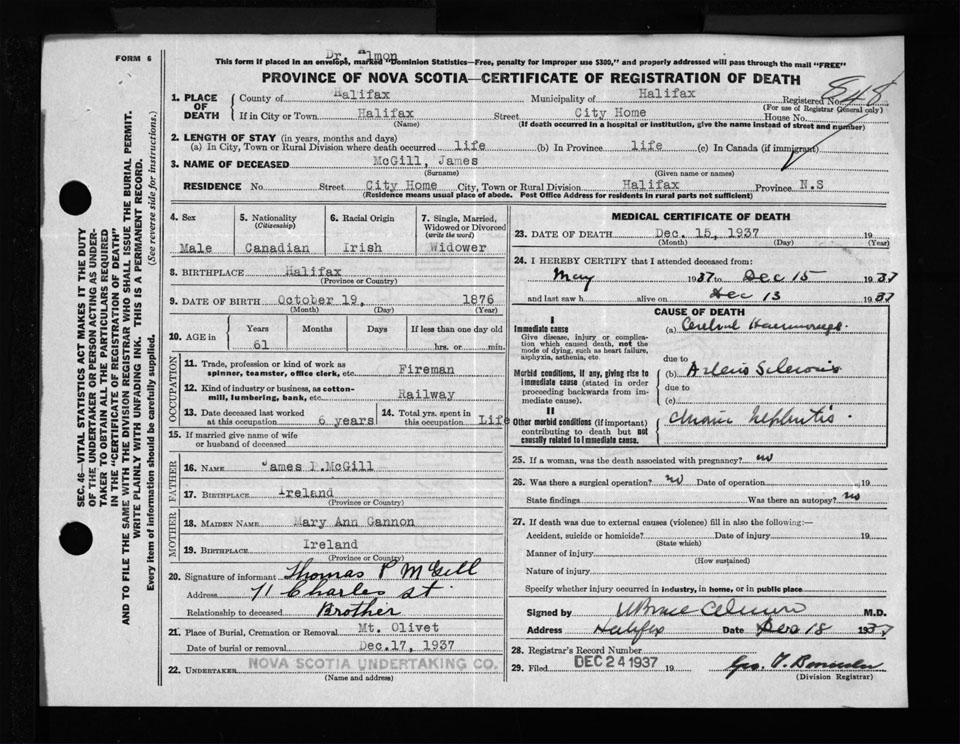 FORM 6
Dr. Almon
This form if placed in an envelope, marked "Dominion Statistics—Free, penalty for improper use $300," and properly addressed will pass through the mail "FREE"
PROVINCE OF NOVA SCOTIA—CERTIFICATE OF REGISTRATION OF DEATH
848
1. PLACE OF DEATH
County of Halifax Municipality of Halifax Registered No.
(For use of Registrar General only)
If in City or Town Halifax Street City Home House No.
(Name) (If death occurred in a hospital or institution, give the name instead of street and number)
2. LENGTH OF STAY (in years, months and days)
(a) In City, Town or Rural Division where death occurred life (b) In Province life (c) In Canada (if immigrant)
3. NAME OF DECEASED McGill, James
(Surname) (Given name or names)
RESIDENCE No. Street City Home City, Town or Rural Division Halifax Province N.S
(Residence means usual place of abode. Post Office Address for residents in rural parts not sufficient)
4. Sex
Male
5. Nationality
(Citizenship)
Canadian
6. Racial Origin
Irish
7. Single, Married, Widowed or Divorced
(write the word)
Widower
8. BIRTHPLACE Halifax
(Province or Country)
9. DATE OF BIRTH October 19, 1876
(Month) (Day) (Year)
10. AGE in
Years Months Days If less than one day old
61 hrs. or min.
OCCUPATION
11. Trade, profession or kind of work as
spinner, teamster, office clerk, etc. Fireman
12. Kind of industry or business, as cotton-
mill, lumbering, bank, etc. Railway
13. Date deceased last worked
at this occupation 6 years
14. Total yrs. spent in
this occupation Life
15. If married give name of wife
or husband of deceased
FATHER
16. NAME James P.McGill
17. BIRTHPLACE Ireland
(Province or Country)
MOTHER
18. MAIDEN NAME Mary Ann Gannon
19. BIRTHPLACE Ireland
(Province or Country)
20. Signature of informant Thomas P McGill
Address 71 Charles St.
Relationship to deceased Brother
21. Place of Burial, Cremation or Removal Mt. Olivet
Date of burial or removal Dec.17, 1937
22. UNDERTAKER NOVA SCOTIA UNDERTAKING CO.
(Name and address)
MEDICAL CERTIFICATE OF DEATH
23. DATE OF DEATH Dec. 15, 1937 19
(Month) (Day) (Year)
24. I HEREBY CERTIFY that I attended deceased from:
May 1937 to Dec 15 1937
and last saw h alive on Dec 13 1937
CAUSE OF DEATH
I
Immediate cause
Give disease, injury or complica-
tion which caused death, not the
mode of dying, such as heart failure,
asphyxia, asthenia, etc.
(a) Cerebral Haemorrhage
due to
Morbid conditions, if any, giving rise to
immediate cause (stated in order
proceeding backwards from im-
mediate cause).
(b) Arterio Sclerosis
due to
(c)
II
Other morbid conditions (if important)
contributing to death but not
causally related to immediate cause.
Chronic Nephritis
25. If a woman, was the death associated with pregnancy? no
26. Was there a surgical operation? no Date of operation 19
State findings Was there an autopsy? no
27. If death was due to external causes (violence) fill in also the following:—
Accident, suicide or homicide? Date of injury 19
(State which)
Manner of injury
(How sustained)
Nature of injury
Specify whether injury occurred in industry, in home, or in public place
Signed by Almon M.D.
Address Halifax Date Dec 18 1937
28. Registrar's Record Number
29. Filed DEC 24 1937 19
(Division Registrar)
SEC. 46—VITAL STATISTICS ACT MAKES IT THE DUTY
OF THE UNDERTAKER OR PERSON ACTING AS UNDER-
TAKER TO OBTAIN ALL THE PARTICULARS REQUIRED
IN THE "CERTIFICATE OF REGISTRATION OF DEATH"
AND TO FILE THE SAME WITH THE DIVISION REGISTRAR WHO SHALL ISSUE THE BURIAL PERMIT.
WRITE PLAINLY WITH UNFADING INK. THIS IS A PERMANENT RECORD.
Every item of information should be carefully supplied. (See reverse side for instructions.)